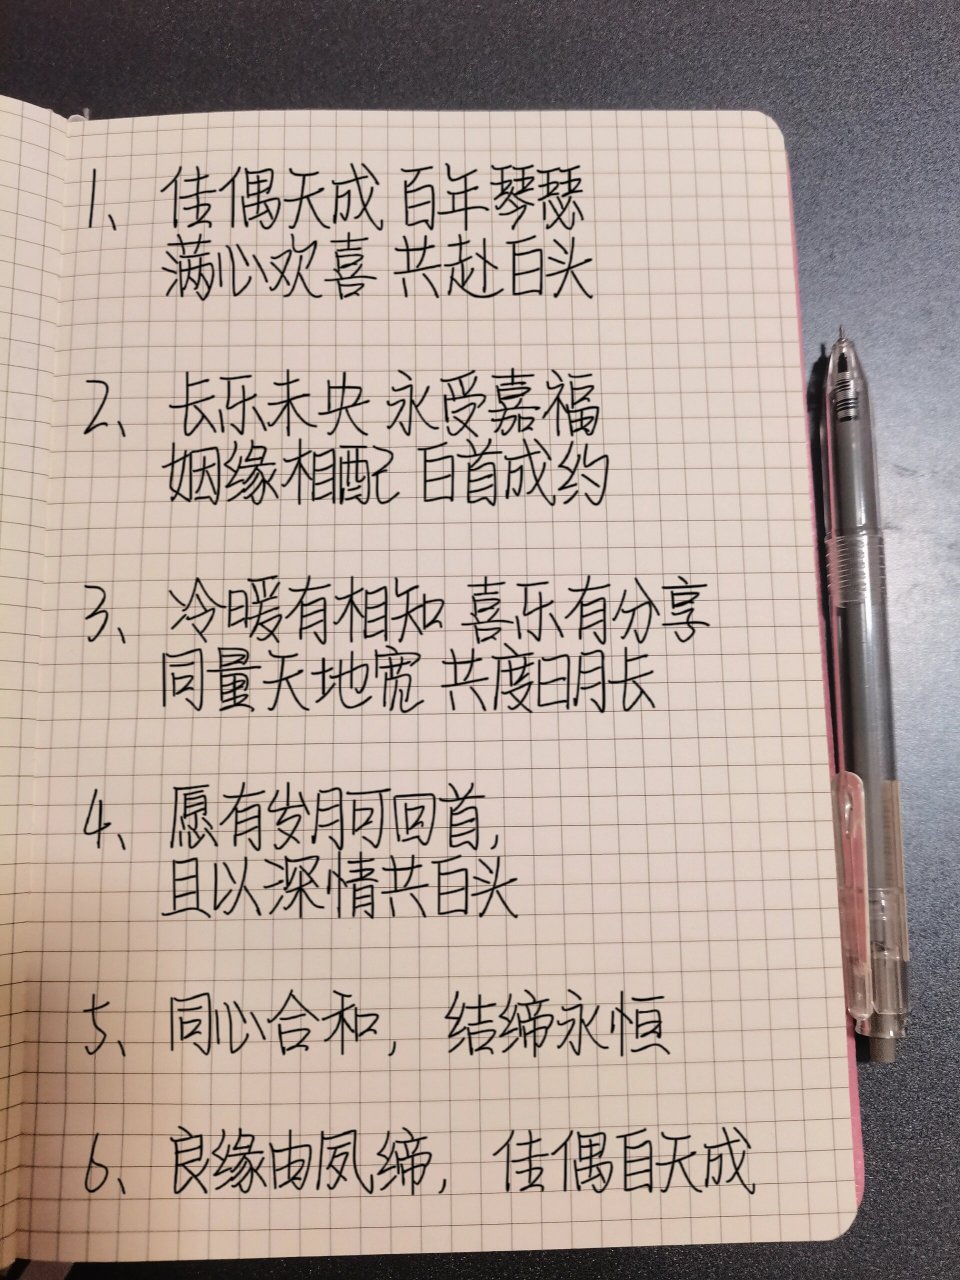 1、佳偶天成 百年琴瑟
满心欢喜 共赴白头
2、长乐未央 永受嘉福
姻缘相配 白首成约
3、冷暖有相知 喜乐有分享
同量天地宽 共度日月长
4、愿有岁月可回首,
且以深情共白头
5、同心合和, 结缔永恒
6、良缘由夙缔, 佳偶自天成